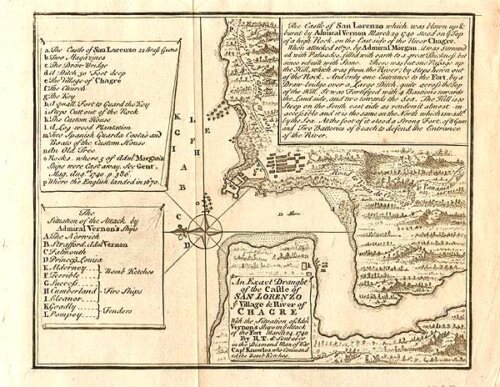 a The Castle of San Lorenzo 22 Brass Guns
b Two Magazines
c The Draw Bridge
d A Ditch 30 Foot deep
e The Village of Chagre
f The Church
g The Key
h A Small Fort to Guard the Key
i Steps Cutt out of the Rock
k The Custom House
l A Log wood Plantation
m Two Spanish Guarda Costa's and
Boats of the Custom House
n An Old Tree
o Rocks, where 5 of Adm.l Morgan's
Ships were Cast away. See Gent.
Mag. Aug.st 1740. p. 386.
p Where the English landed in 1670.
The Castle of San Lorenzo which was blown up &
burnt by Admiral Vernon March 29 1740 stood on y.e Top
of a high Rock, on the East side of the River Chagre.
When attacked 1670, by Admiral Morgan, it was surround
ed with Palisadoes, filled with earth to a great thickness but
since rebuilt with Stone. There was but one Passage up
the Hill, which was from the River, by steps hewn out
of the Rock. And only one Entrance to the Fort, by a
Draw-bridge over a Large Ditch, quite across the Top
of the Hill. It was Fortifyed with 4 Bastions towards
the Land side, and two towards the Sea. The Hill was
Steep on the South east side as rendered almost in
accessible and it is the same on the North which is wash'd
by the Sea. At the foot of it stood a Strong Fort, of 8 Guns
and Two Batteries of 6 each to defend the Entrance
of the River.
The
Situation of the Attack by
Admiral Vernon's Ships
A The Norwich
B. Strafford. Adm.l Vernon
C. Falmouth
D. Princess Louisa
E. Alderney
F. Terrible
Bomb Ketches
G. Success
H. Cumberland
I. Eleanor
Fire Ships
K. Goodly
L. Pompey
Tenders
An Exact Draught
of the Castle of
SAN LORENZO
y.e Village & River of
CHAGRE
With the Situation of Adm.l
Vernon's Ships in the Attack
of the Fort March 24 1740
By R.T. & Sent over
in the Diamond Man of War
Cap.t Knowles who Command
ed the Bomb Ketches.